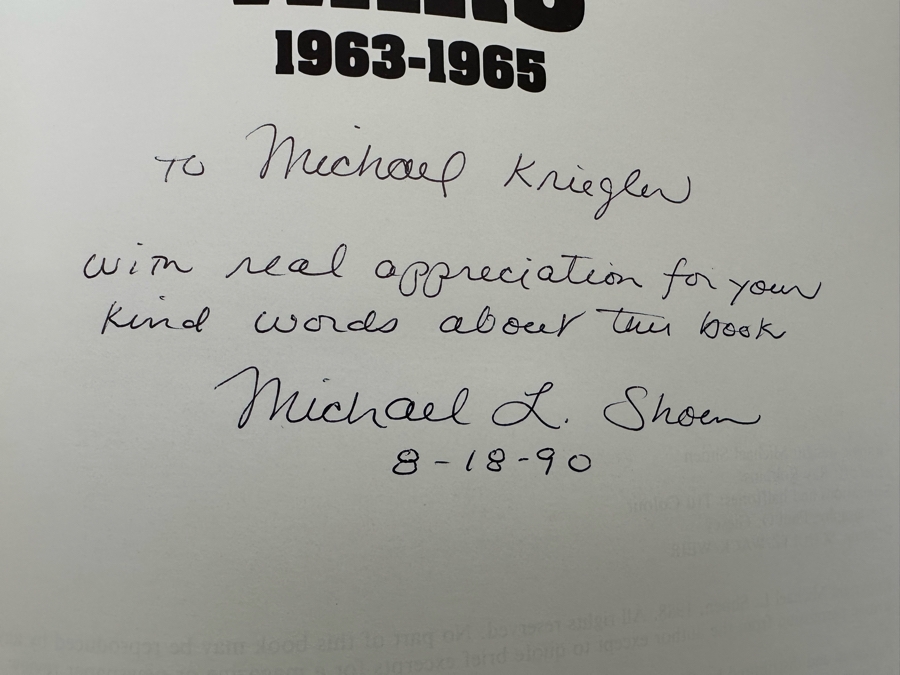 1963-1965
To Michael Kriegler
with real appreciation for your
kind words about this book
Michael L. Shoen
8-18-90